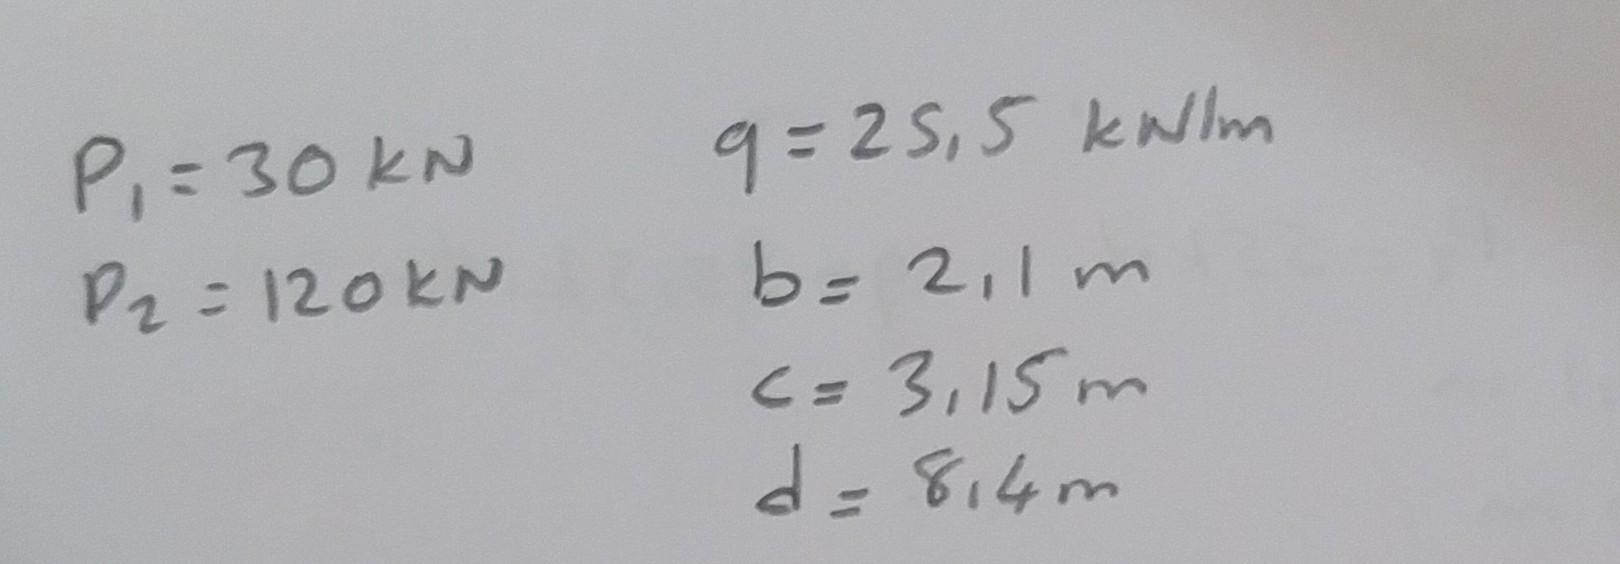 P₁ = 30 kN
P₂ = 120 kN
q = 25,5 kN/m
b = 2,1 m
c = 3,15 m
d = 8,4 m